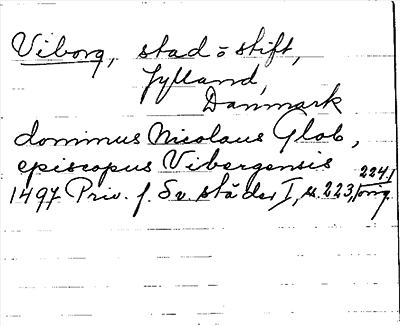 Viborg, stad o stift,
Jylland,
Danmark
dominus Nicolaus Glob,
episcopus Vibergensis
224.1
1497 Priv. f. Sv. städer I, s. 223, orig.